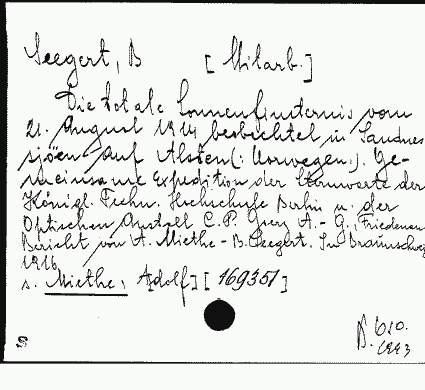 Seegert, B [Mitarb.]
Die totale Sonnenfinsternis vom
21. August 1914 beobachtet in Sandnes-
sjöen auf Alsten (: Norwegen :). Ge-
meinsame Expedition der Sternwarte der
Königl. Techn. Hochschule Berlin u. der
Optischen Anstalt C. P. Goerz A.-G., Friedenau
Bericht von A. Miethe - B. Seegert. In Braunschweig
1916
s. Miethe, Adolf] [169351]
1993